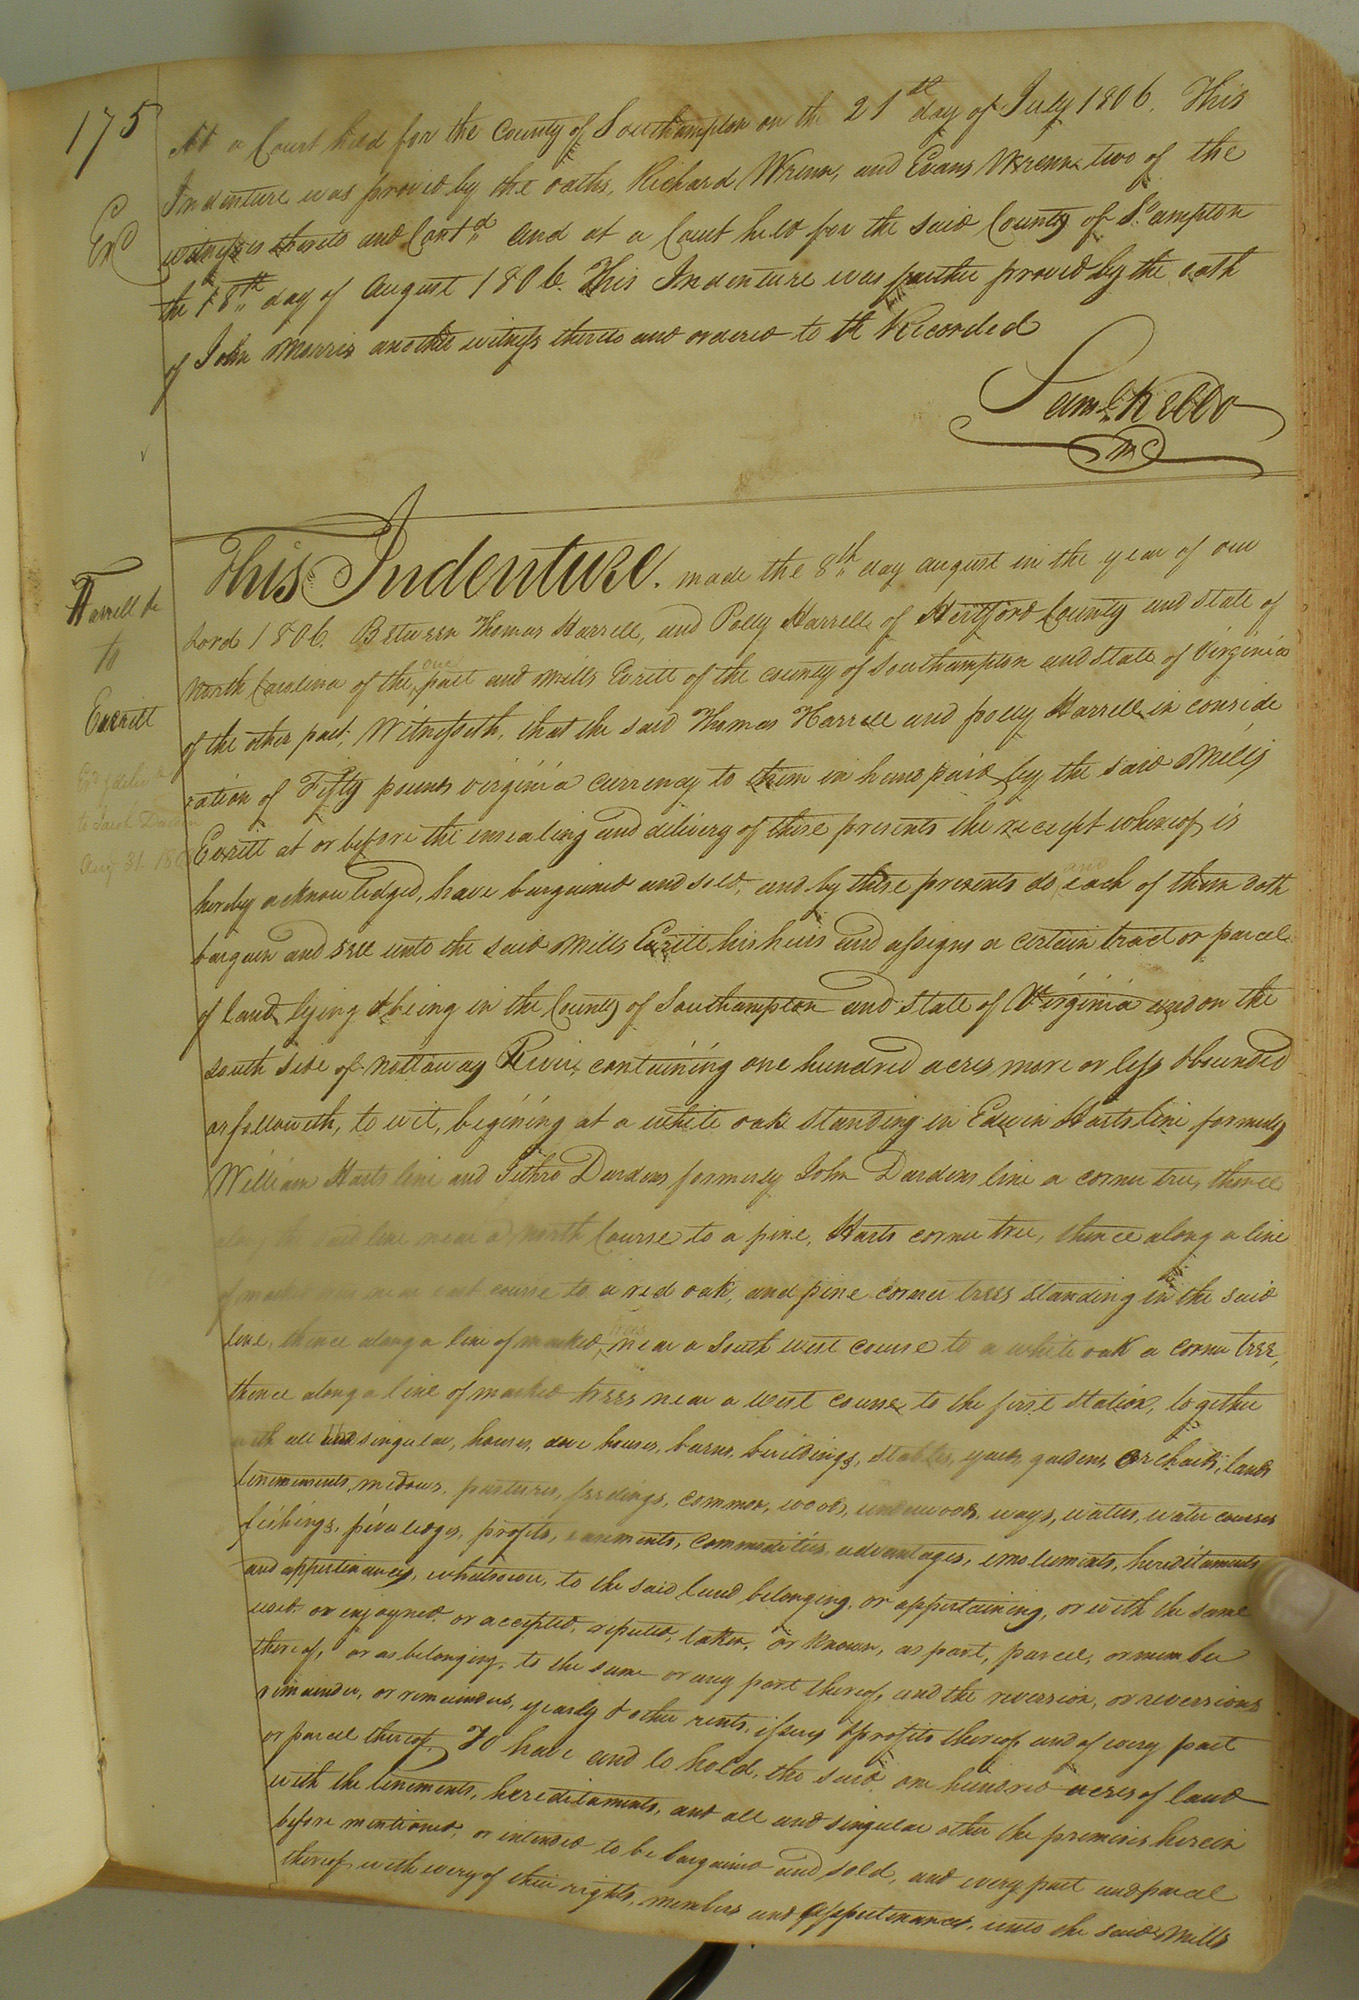 175
At a Court held for the County of Southampton on the 21st day of July 1806. This
Indenture was proved by the oaths, Richard Wrenn, and Evans Wrenn two of the
witnesses thereto and Contd. and at a Court held for the said County of S.ampton
the 18th day of August 1806. This Indenture was further proved by the oath
of John Morris another witness thereto and ordered to be Recorded
Exd
Saml. Kello
Harrell &c
to
Everitt
This Indenture. made the 8th day august in the year of our
Lord 1806. Between Thomas Harrell, and Polly Harrell of Hertford County and State of
North Carolina of the one part and Mills Everitt of the county of Southampton and State of Virginia
of the other part, Witnesseth, that the said Thomas Harrell and polly Harrell in conside
ration of Fifty pounds virginia currency to them in hand paid by the said Mills
Everitt at or before the ensealing and delivery of these presents the receipt whereof is
hereby acknowledged, have bargained and sold, and by these presents do and each of them doth
bargain and sell unto the said Mills Everitt his heirs and assigns a certain tract or parcel
of land lying & being in the County of Southampton and State of Virginia and on the
south side of Nottaway River containing one hundred acres more or less & bounded
as followeth, to wit, begining at a white oak standing in Edwin Harts line formerly
William Harts line and Jethro Dardens formerly John Dardens line a corner tree, thence
along the said line near a north Course to a pine, Harts corner tree, thence along a line
of marked near east course to a red oak, and pine corner trees standing in the said
line, thence along a line of marked trees near a South west course to a white oak a corner tree,
thence along a line of marked trees near a west course to the first station, together
with all and singular, houses, out houses, barns, buildings, stables, yards, gardens, orchards, lands
tenements, medows, pastures, feedings, common, woods, underwoods, ways, waters, water courses
fishings, priviledges, profits, easments, commodities, advantages, emoluments, hereditaments
and appertinances, whatsoever, to the said land belonging, or appertaining, or with the same
used or enjoyned or accepted, reputed, taken, or known, as part, parcel, or member
thereof, or as belonging, to the same or any part thereof, and the reversion, or reversions
remainder, or remainders, yearly & other rents, issues & profits thereof and of every part
or parcel thereof. To have and to hold, the said one hundred acres of land
with the tenements, hereditaments, and all and singular other the premises herein
before mentioned, or intended to be bargained and sold, and every part and parcel
thereof, with every of their rights, members and appertenances, unto the said Mills